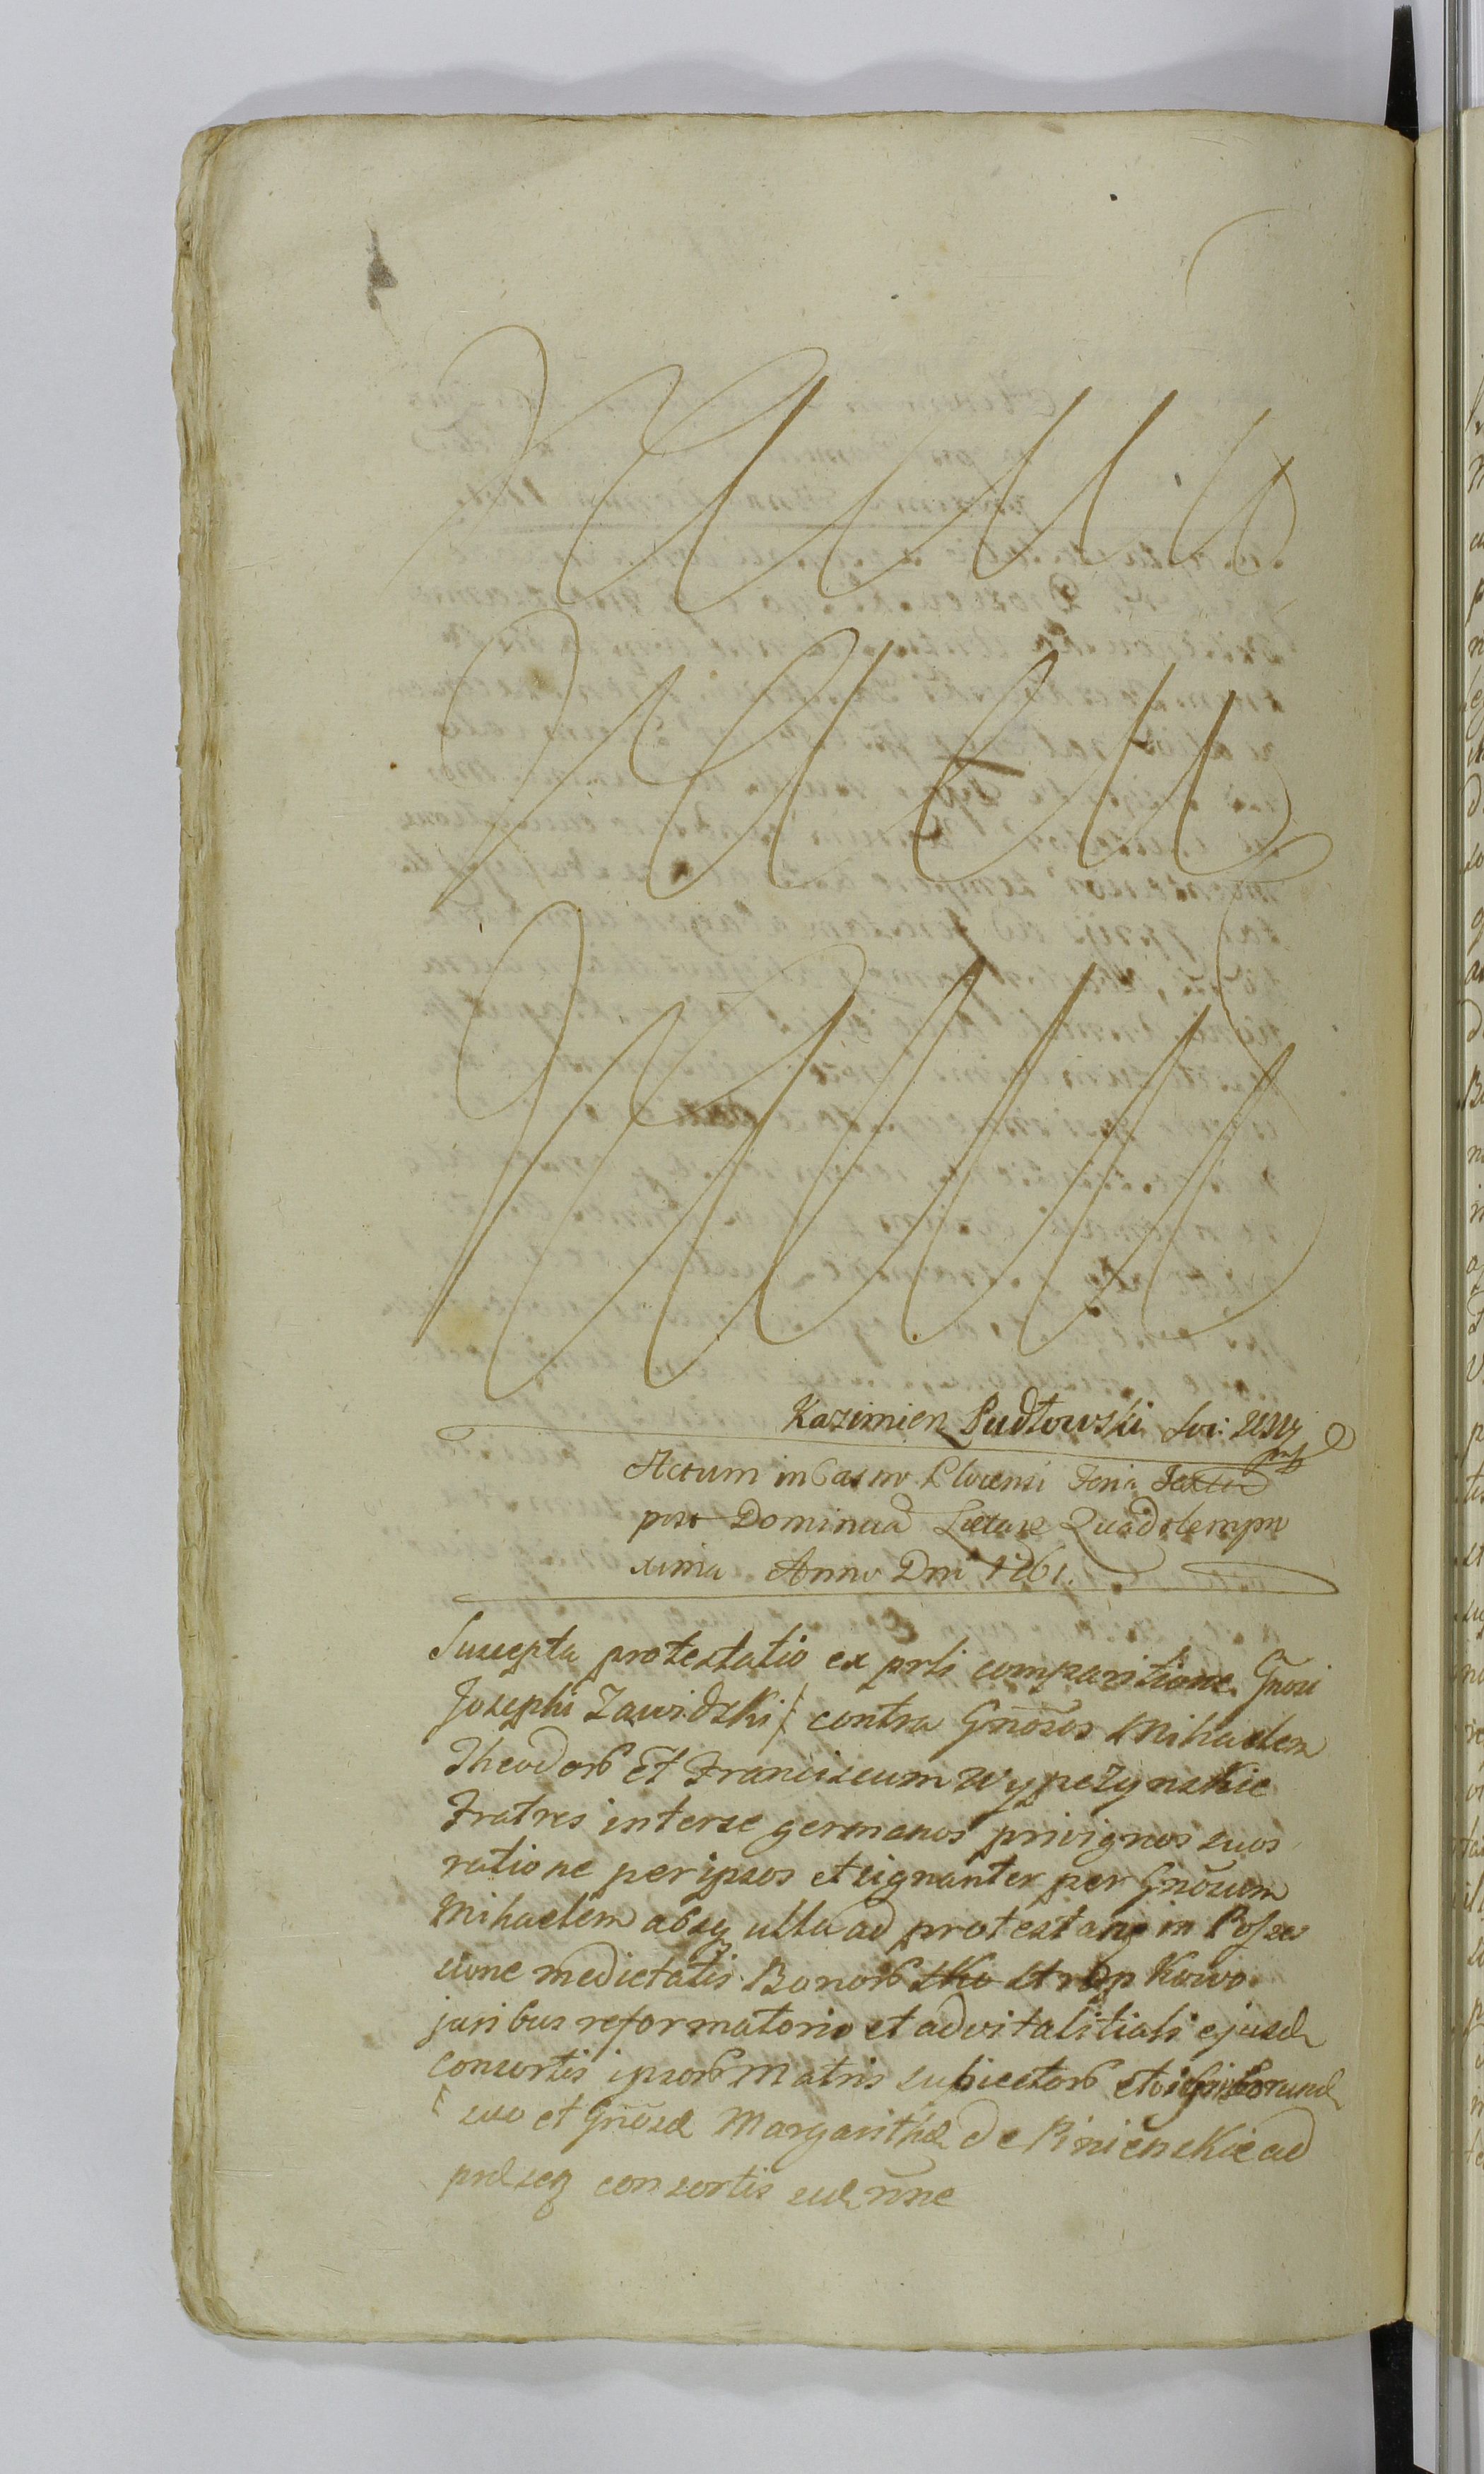 Kazimierz Pudłowski
Actum in Castro Plocensi Feria Sexta
post Dominicã Lætare Quadrlem pro
xima Anno Dni 1761.
Suscepta protestatio ex prli comparitione Gnosi
Josephi Zawidzki contra Gnosos Mihaelem
Theodor et Franciscum Wypczynskie
Fratres inter se germanos privignos suos
ratione per ipsos et signanter per Gnosum
Mihaelem absq ulla ad protestang in Posses
sione medietatis Bonor Stropkowo
juribus reformatorio et advitalitiali ejusd
consortis ipsor Matris subiector et
suo et Gnosæ Margarithæ de Pinienskie ad
præseq consortis suæ nõne